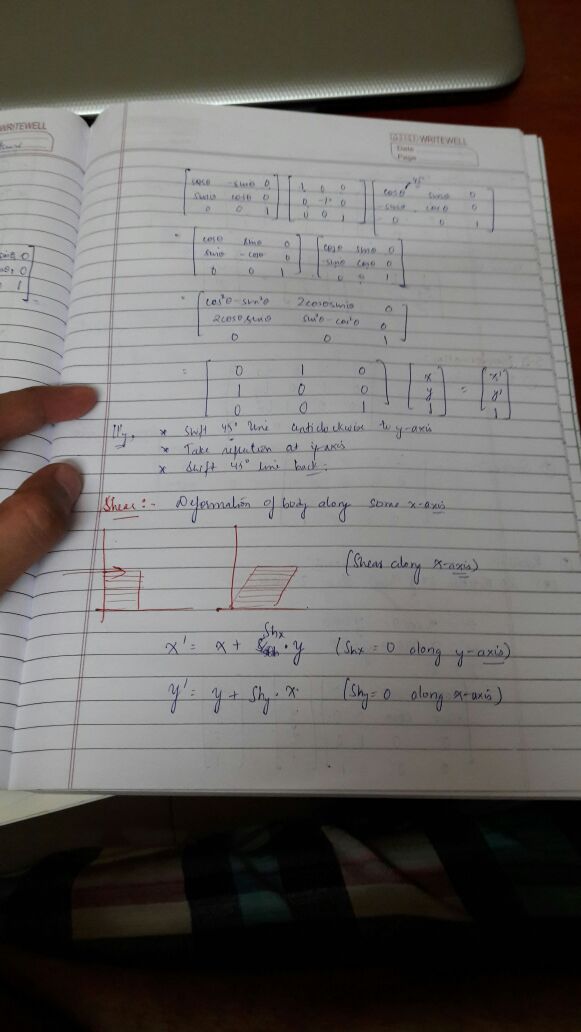 WRITEWELL
WRITEWELL
Date
Page
[cosθ -sinθ 0] [1 0 0] [cosθ sinθ 0] 45°
[sinθ cosθ 0] [0 -1 0] [-sinθ cosθ 0]
[0 0 1] [0 0 1] [0 0 1]
= [cosθ sinθ 0] [cosθ sinθ 0]
[sinθ -cosθ 0] [-sinθ cosθ 0]
[0 0 1] [0 0 1]
= [cos²θ-sin²θ 2cosθsinθ 0]
[2cosθsinθ sin²θ-cos²θ 0]
[0 0 1]
= [0 1 0] [x] = [x']
[1 0 0] [y] [y']
[0 0 1] [1] [1]
lly, * shift 45° line anticlockwise to y-axis
* Take reflection at y-axis
* shift 45° line back.
Shear:- Deformation of body along some x-axis
(Shear along x-axis)
x' = x + Shx · y (Shx = 0 along y-axis)
y' = y + Shy · x (Shy = 0 along x-axis)